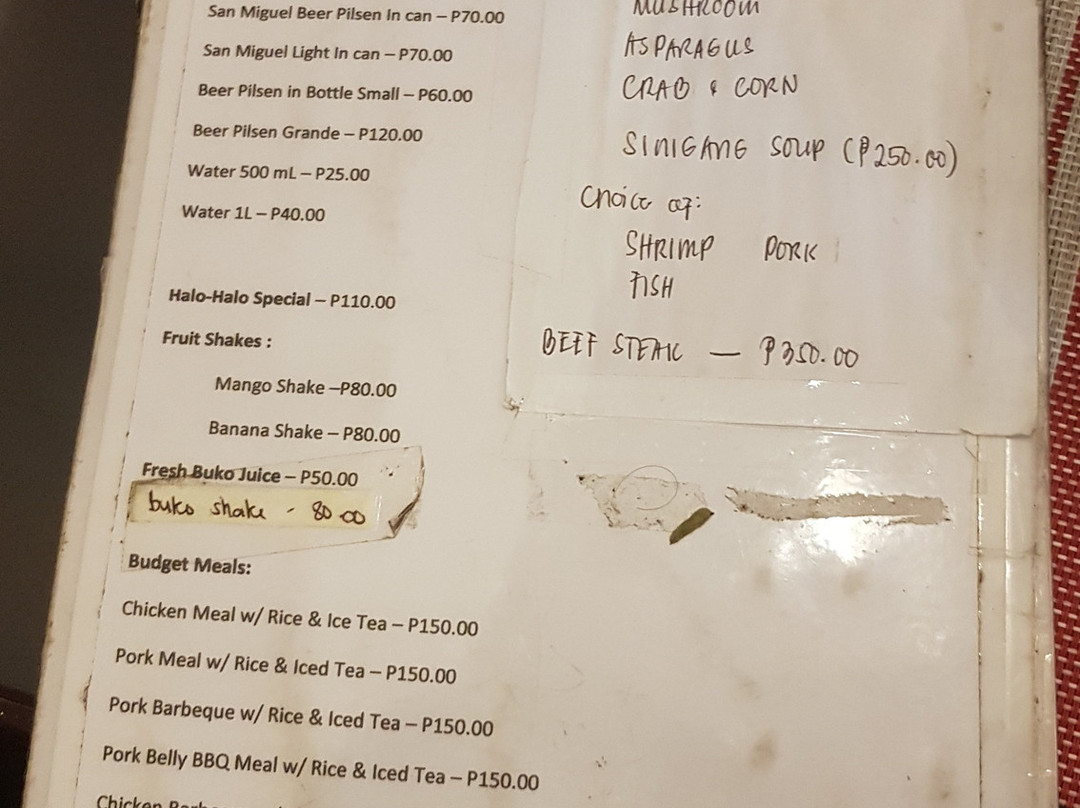 San Miguel Beer Pilsen In can – P70.00
San Miguel Light In can – P70.00
Beer Pilsen in Bottle Small – P60.00
Beer Pilsen Grande – P120.00
Water 500 mL – P25.00
Water 1L – P40.00
Halo-Halo Special – P110.00
Fruit Shakes :
Mango Shake –P80.00
Banana Shake – P80.00
Fresh Buko Juice – P50.00
buko shake - 80.00
Budget Meals:
Chicken Meal w/ Rice & Ice Tea – P150.00
Pork Meal w/ Rice & Iced Tea – P150.00
Pork Barbeque w/ Rice & Iced Tea – P150.00
Pork Belly BBQ Meal w/ Rice & Iced Tea – P150.00
Chicken
MUSHROOM
ASPARAGUS
CRAB & CORN
SINIGANG SOUP (₱250.00)
Choice of:
SHRIMP PORK
FISH
BEEF STEAK — ₱350.00